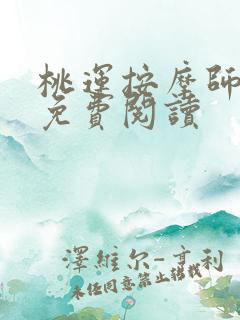 桃運按摩師
免費閱讀
澤維尔-亨利
未经同意禁止转载